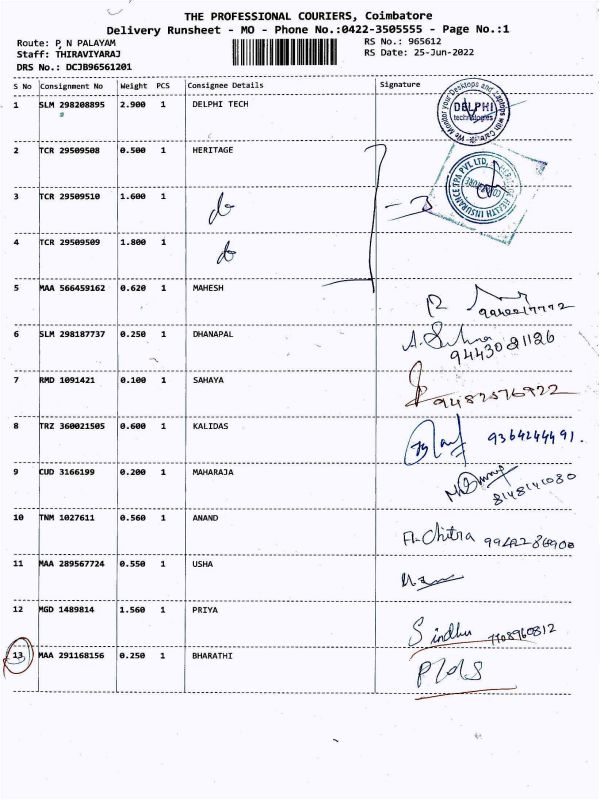 THE PROFESSIONAL COURIERS, Coimbatore
Delivery Runsheet - MO - Phone No.:0422-3505555 - Page No.:1
Route: P N PALAYAM RS No.: 965612
Staff: THIRAVIYARAJ RS Date: 25-Jun-2022
DRS No.: DCJB96561201
S No Consignment No Weight PCS Consignee Details Signature
1 SLM 298208895 2.900 1 DELPHI TECH
We Monitor your Desktops and Laptops with Care
DELPHI
technologies
2 TCR 29509508 0.500 1 HERITAGE
HEALTH INSURANCE TPA PVT LTD.
3 TCR 29509510 1.600 1 do - 3
4 TCR 29509509 1.800 1 do
5 MAA 566459162 0.620 1 MAHESH
6 SLM 298187737 0.250 1 DHANAPAL
9443021126
7 RMD 1091421 0.100 1 SAHAYA
9482576922
8 TRZ 360021505 0.600 1 KALIDAS
9364244491.
9 CUD 3166199 0.200 1 MAHARAJA
8148141080
10 TNM 1027611 0.560 1 ANAND
A. Chitra
11 MAA 289567724 0.550 1 USHA
12 MGD 1489814 1.560 1 PRIYA
Sindhu 7708960812
13 MAA 291168156 0.250 1 BHARATHI